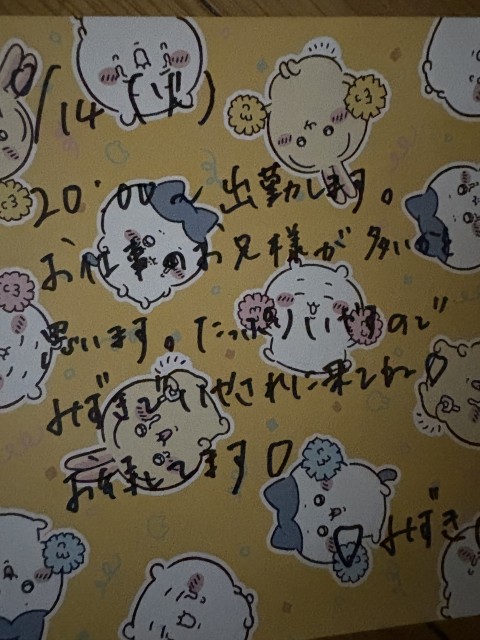 /14 (火)
20:00〜出勤します。
お仕事のお兄様が多いと
思います。たっぷりいやすので
みずきにいやされに来てね♡
お待ちしてます♡
♡みずき